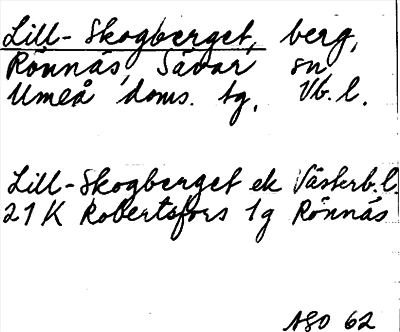 Lill-Skogberget, berg,
Rönnäs, Sävar sn
Umeå doms. tg. Vb. l.
Lill-Skogberget ek Västerb. l.
21 K Robertsfors tg Rönnäs
ASO 62